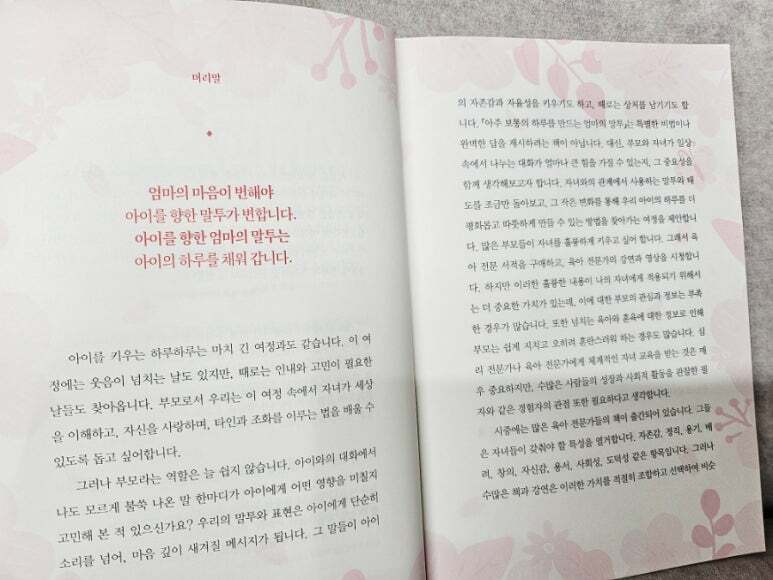 머리말
엄마의 마음이 변해야
아이를 향한 말투가 변합니다.
아이를 향한 엄마의 말투는
아이의 하루를 채워 갑니다.
아이를 키우는 하루하루는 마치 긴 여정과도 같습니다. 이 여
정에는 웃음이 넘치는 날도 있지만, 때로는 인내와 고민이 필요한
날들도 찾아옵니다. 부모로서 우리는 이 여정 속에서 자녀가 세상
을 이해하고, 자신을 사랑하며, 타인과 조화를 이루는 법을 배울 수
있도록 돕고 싶어합니다.
그러나 부모라는 역할은 늘 쉽지 않습니다. 아이와의 대화에서
나도 모르게 불쑥 나온 말 한마디가 아이에게 어떤 영향을 미칠지
고민해 본 적 있으신가요? 우리의 말투와 표현은 아이에게 단순히
소리를 넘어, 마음 깊이 새겨질 메시지가 됩니다. 그 말들이 아이
의 자존감과 자율성을 키우기도 하고, 때로는 상처를 남기기도 합
니다. 『아주 보통의 하루를 만드는 엄마의 말투』는 특별한 비법이나
완벽한 답을 제시하려는 책이 아닙니다. 대신, 부모와 자녀가 일상
속에서 나누는 대화가 얼마나 큰 힘을 가질 수 있는지, 그 중요성을
함께 생각해보고자 합니다. 자녀와의 관계에서 사용하는 말투와 태
도를 조금만 돌아보고, 그 작은 변화를 통해 우리 아이의 하루를 더
평화롭고 따뜻하게 만들 수 있는 방법을 찾아가는 여정을 제안합니
다. 많은 부모들이 자녀를 훌륭하게 키우고 싶어 합니다. 그래서 육
아 전문 서적을 구매하고, 육아 전문가의 강연과 영상을 시청합니
다. 하지만 이러한 훌륭한 내용이 나의 자녀에게 적용되기 위해서
는 더 중요한 가치가 있는데, 이에 대한 부모의 관심과 정보는 부족
한 경우가 많습니다. 또한 넘치는 육아와 훈육에 대한 정보로 인해
부모는 쉽게 지치고 오히려 혼란스러워 하는 경우도 많습니다. 심
리 전문가나 육아 전문가에게 체계적인 자녀 교육을 받는 것은 매
우 중요하지만, 수많은 사람들의 성장과 사회적 활동을 관찰한 필
자와 같은 경험자의 관점 또한 필요하다고 생각합니다.
시중에는 많은 육아 전문가들의 책이 출간되어 있습니다. 그들
은 자녀들이 갖춰야 할 특성을 열거합니다. 자존감, 정직, 용기, 배
려, 창의, 자신감, 용서, 사회성, 도덕성 같은 항목입니다. 그러나
수많은 책과 강연은 이러한 가치를 적절히 조합하고 선택하여 비슷